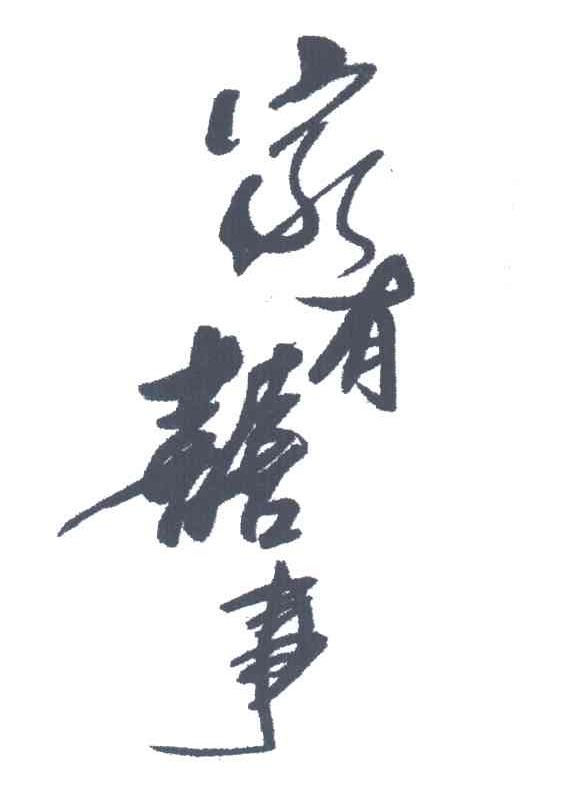 家有囍事